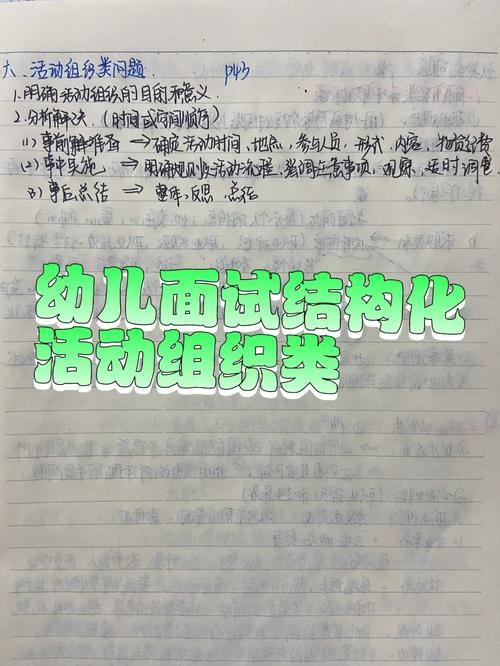 六、活动组织类问题. P43
1.明确活动组织的目的和意义.
2.分析解决.(时间或空间顺序)
(1)事前解准备 → 确定活动时间,地点,参与人员,形式,内容,物资经费
(2)事中实施 → 明确规则及活动流程,强调注意事项,观察,及时调整.
(3)事后总结 → 整体反思 总结
幼儿面试结构化
活动组织类